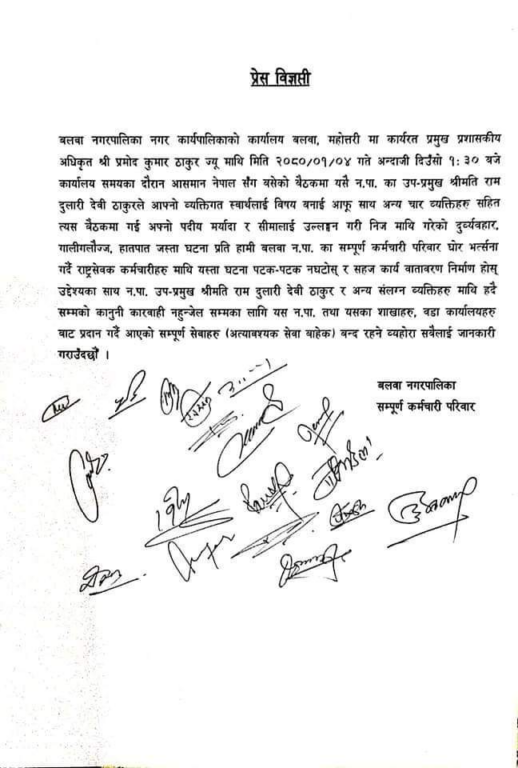 प्रेस विज्ञप्ती
बलवा नगरपालिका नगर कार्यपालिकाको कार्यालय बलवा, महोत्तरी मा कार्यरत प्रमुख प्रशासकीय
अधिकृत श्री प्रमोद कुमार ठाकुर ज्यू माथि मिति २०८०/०१/०४ गते अन्दाजी दिउँसो १:३० बजे
कार्यालय समयका दौरान आसमान नेपाल सँग बसेको बैठकमा यसै न.पा. का उप-प्रमुख श्रीमति राम
दुलारी देवी ठाकुरले आपनो व्यक्तिगत स्वार्थलाई विषय बनाई आफू साथ अन्य चार व्यक्तिहरु सहित
त्यस बैठकमा गई अपनो पदीय मर्यादा र सीमालाई उल्लङ्घन गरी निज माथि गरेको दुर्व्यवहार,
गालीगलौज्ज, हातपात जस्ता घटना प्रति हामी बलवा न.पा. का सम्पूर्ण कर्मचारी परिवार घोर भर्त्सना
गर्दै राष्ट्रसेवक कर्मचारीहरु माथि यस्ता घटना पटक-पटक नघटोस् र सहज कार्य वातावरण निर्माण होस्
उद्देश्यका साथ न.पा. उप-प्रमुख श्रीमति राम दुलारी देवी ठाकुर र अन्य संलग्न व्यक्तिहरु माथि हदै
सम्मको कानुनी कारवाही नहुन्जेल सम्मका लागि यस न.पा. तथा यसका शाखाहरु, वडा कार्यालयहरु
बाट प्रदान गर्दै आएको सम्पूर्ण सेवाहरु (अत्यावश्यक सेवा बाहेक) बन्द रहने व्यहोरा सबैलाई जानकारी
गराउँदछौं ।
बलवा नगरपालिका
सम्पूर्ण कर्मचारी परिवार